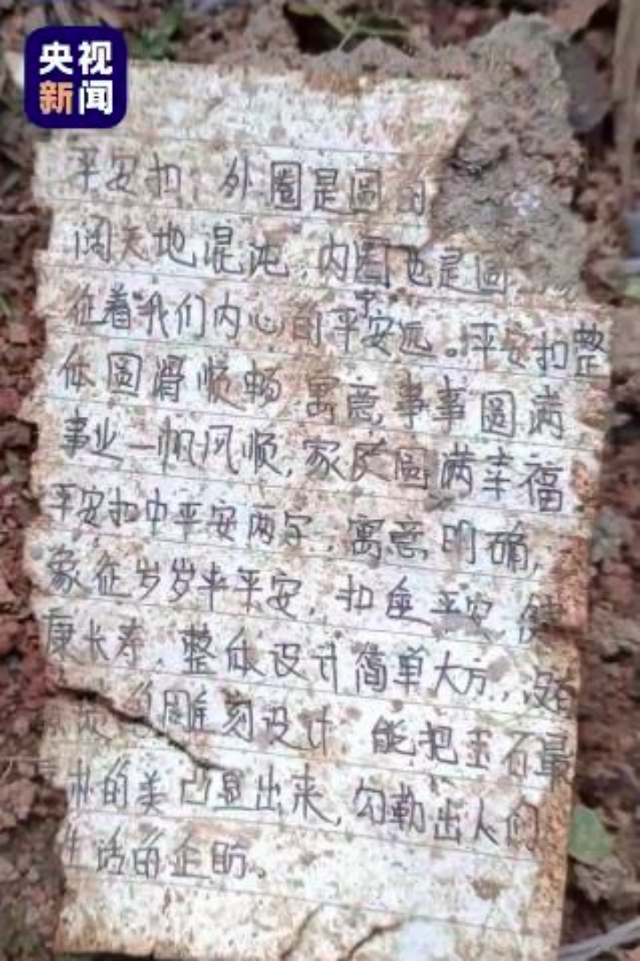 央视
新闻
平安扣，外圈是圆的
阔天地混沌，内圈也是圆
征着我们内心的平安
宁远。平安扣整
体圆滑顺畅 寓意事事圆满，
事业一帆风顺，家庭圆满幸福
平安扣中平安两字，寓意明确，
象征岁岁平平安，扣 平安 健
康长寿，整体设计简单大方，没有
雕刻设计 能把玉石最
的美凸显出来，勾勒出人们
生活的企盼。